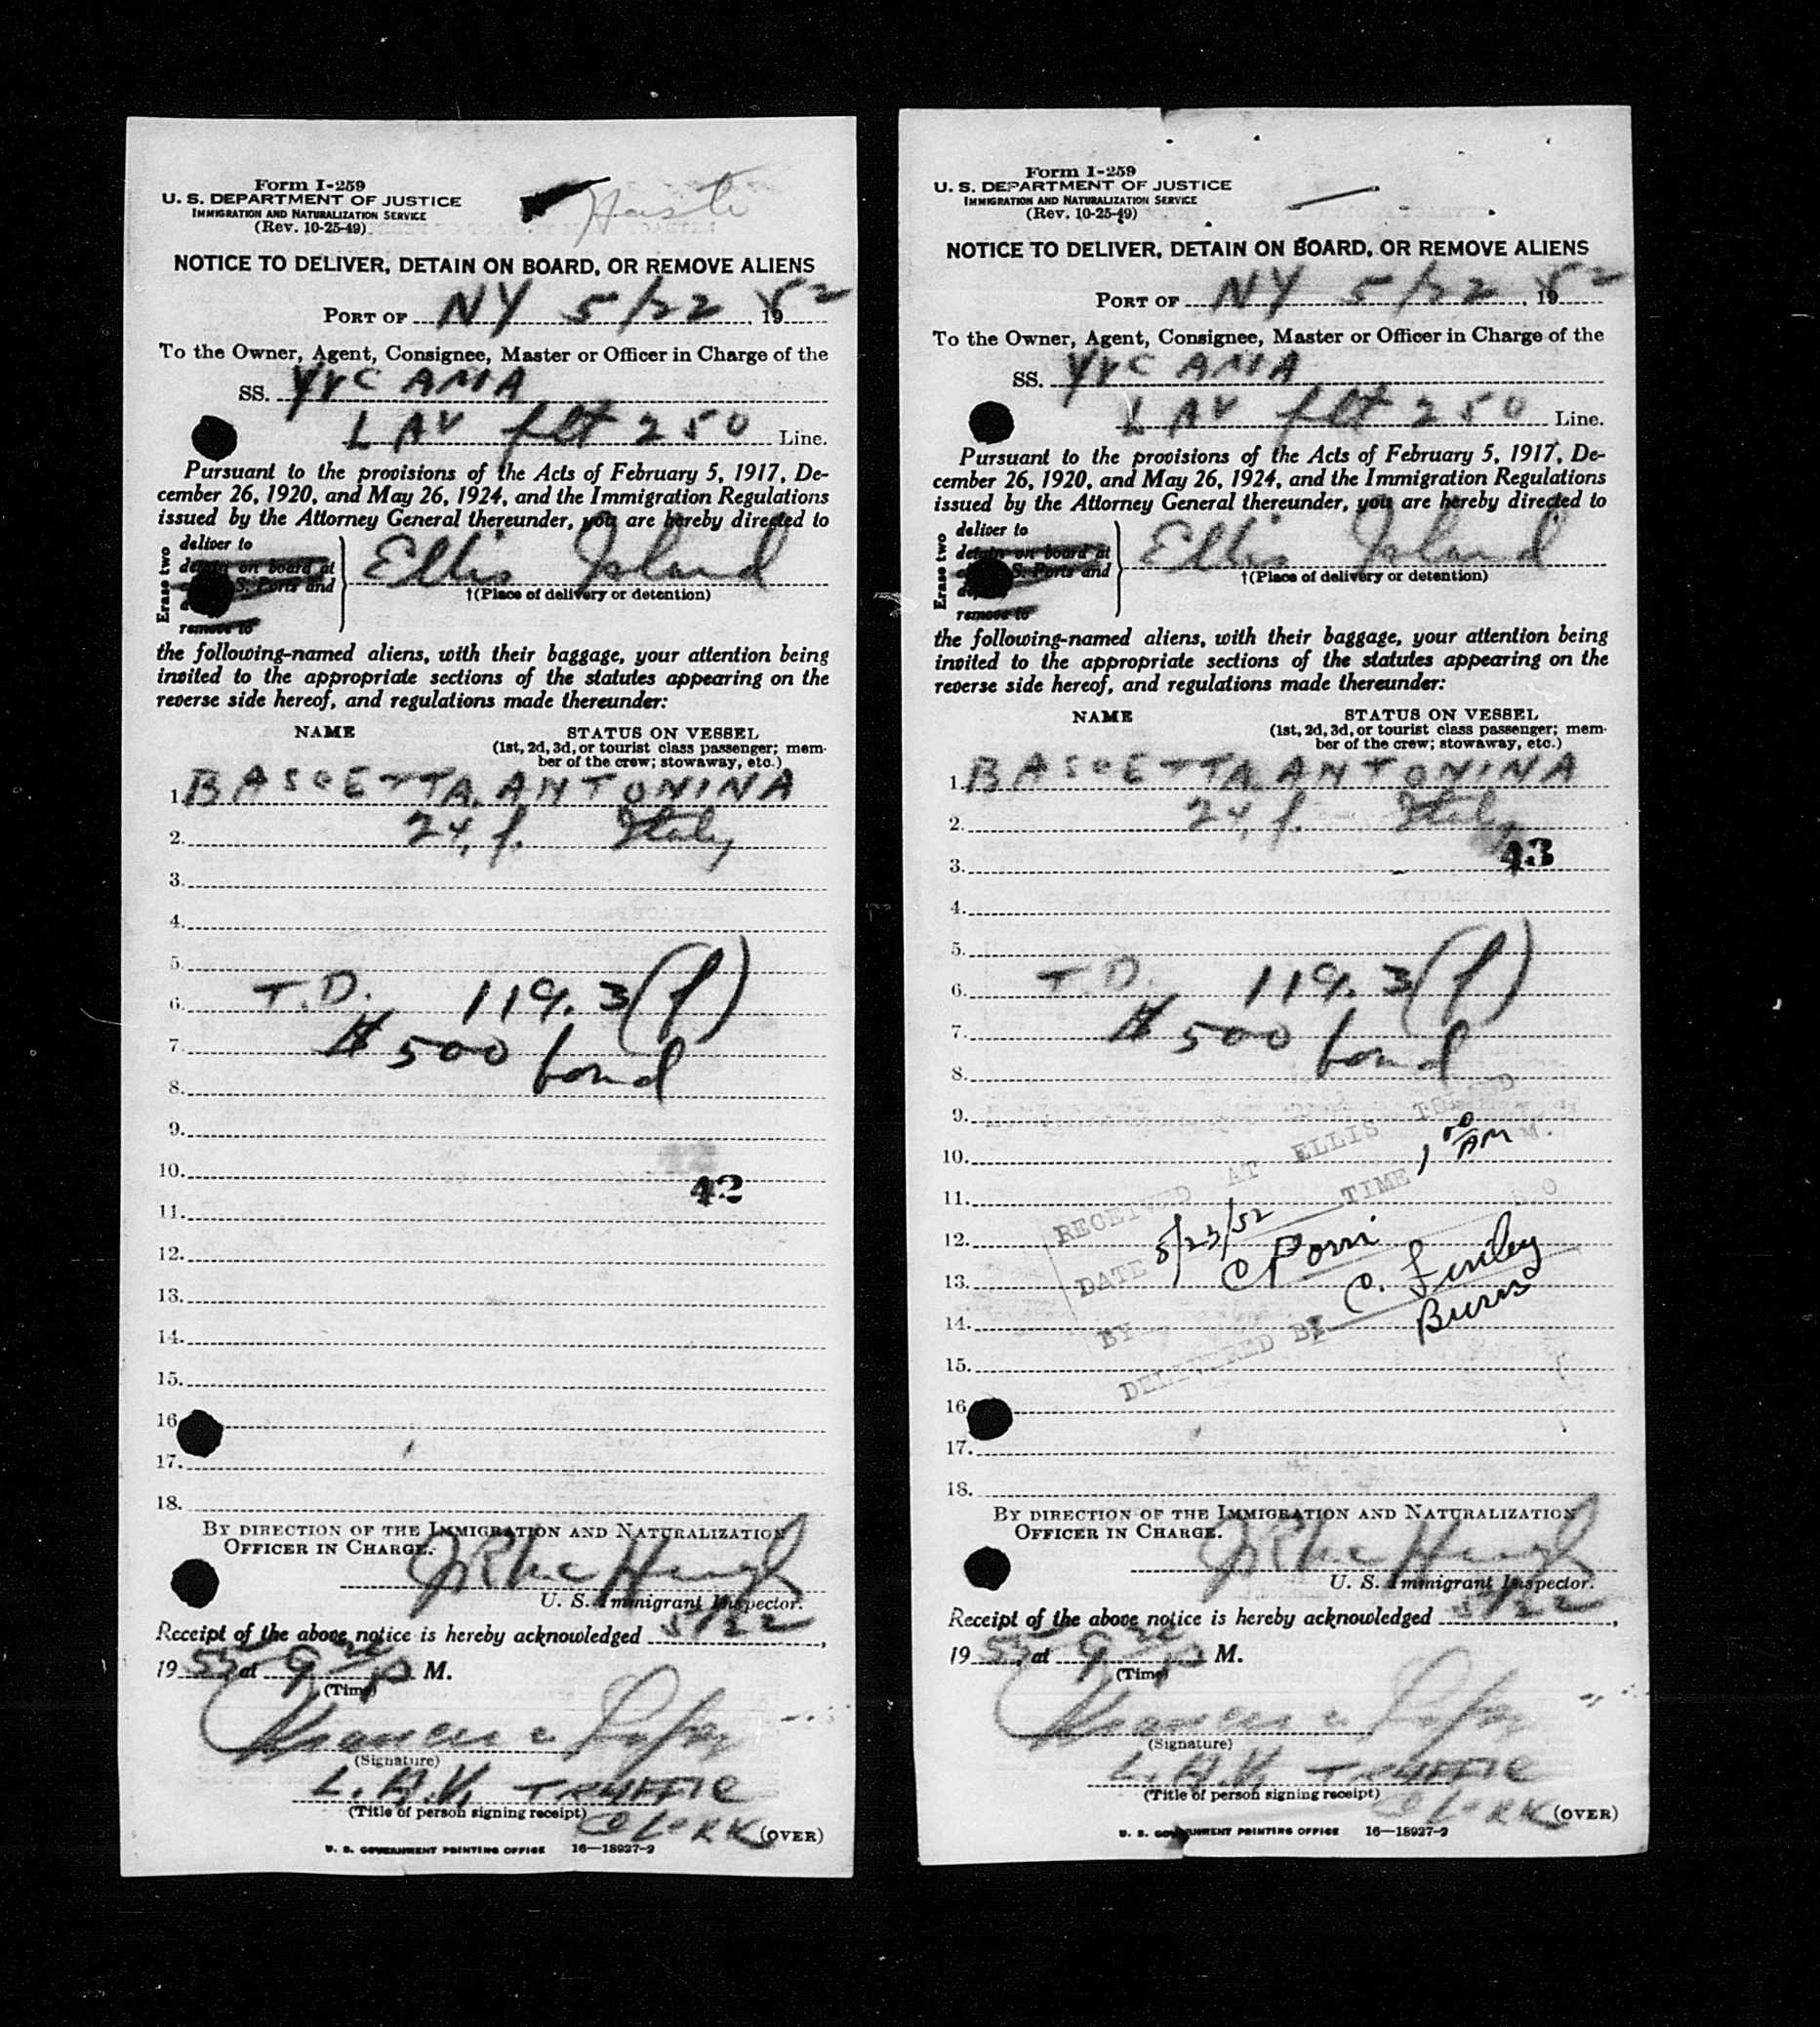 Form I-259
U. S. DEPARTMENT OF JUSTICE
IMMIGRATION AND NATURALIZATION SERVICE
(Rev. 10-25-49)
NOTICE TO DELIVER, DETAIN ON BOARD, OR REMOVE ALIENS
PORT OF NY 5/22, 1952
To the Owner, Agent, Consignee, Master or Officer in Charge of the
SS. YVC AMA
LAV flt 250 Line.
Pursuant to the provisions of the Acts of February 5, 1917, De-
cember 26, 1920, and May 26, 1924, and the Immigration Regulations
issued by the Attorney General thereunder, you are hereby directed to
Erase two
deliver to
detain on board at
U. S. Ports and
remove to
Ellis Island
†(Place of delivery or detention)
the following-named aliens, with their baggage, your attention being
invited to the appropriate sections of the statutes appearing on the
reverse side hereof, and regulations made thereunder:
NAME STATUS ON VESSEL
(1st, 2d, 3d, or tourist class passenger; mem-
ber of the crew; stowaway, etc.)
1. BASCETTA, ANTONINA
2. 24, f. Italy
3.
4.
5.
6. T.D. 119.3(f)
7. $500 bond
8.
9.
10.
42
11.
12.
13.
14.
15.
16.
17.
18.
BY DIRECTION OF THE IMMIGRATION AND NATURALIZATION
OFFICER IN CHARGE.
U. S. Immigrant Inspector.
Receipt of the above notice is hereby acknowledged 5/22,
1952, at 9 P M.
(Time)
(Signature)
L.A.V. TRAFFIC
(Title of person signing receipt)
CLERK
(OVER)
U. S. GOVERNMENT PRINTING OFFICE 16—18927-2
Form I-259
U. S. DEPARTMENT OF JUSTICE
IMMIGRATION AND NATURALIZATION SERVICE
(Rev. 10-25-49)
NOTICE TO DELIVER, DETAIN ON BOARD, OR REMOVE ALIENS
PORT OF NY 5/22, 1952
To the Owner, Agent, Consignee, Master or Officer in Charge of the
SS. YVC AMA
LAV flt 250 Line.
Pursuant to the provisions of the Acts of February 5, 1917, De-
cember 26, 1920, and May 26, 1924, and the Immigration Regulations
issued by the Attorney General thereunder, you are hereby directed to
Erase two
deliver to
detain on board at
U. S. Ports and
remove to
Ellis Island
†(Place of delivery or detention)
the following-named aliens, with their baggage, your attention being
invited to the appropriate sections of the statutes appearing on the
reverse side hereof, and regulations made thereunder:
NAME STATUS ON VESSEL
(1st, 2d, 3d, or tourist class passenger; mem-
ber of the crew; stowaway, etc.)
1. BASCETTA, ANTONINA
2. 24, f. Italy
43
3.
4.
5.
6. T.D. 119.3(f)
7. $500 bond
8.
9.
10.
11.
12.
13.
14.
15.
16.
17.
18.
RECEIVED AT ELLIS ISLAND
DATE 5/23/52 TIME 1 00 AM M.
BY
DELIVERED BY C. Finley
Burns
BY DIRECTION OF THE IMMIGRATION AND NATURALIZATION
OFFICER IN CHARGE.
U. S. Immigrant Inspector.
Receipt of the above notice is hereby acknowledged 5/22,
1952, at 9 P M.
(Time)
(Signature)
L.A.V. TRAFFIC
(Title of person signing receipt)
CLERK
(OVER)
U. S. GOVERNMENT PRINTING OFFICE 16—18927-2